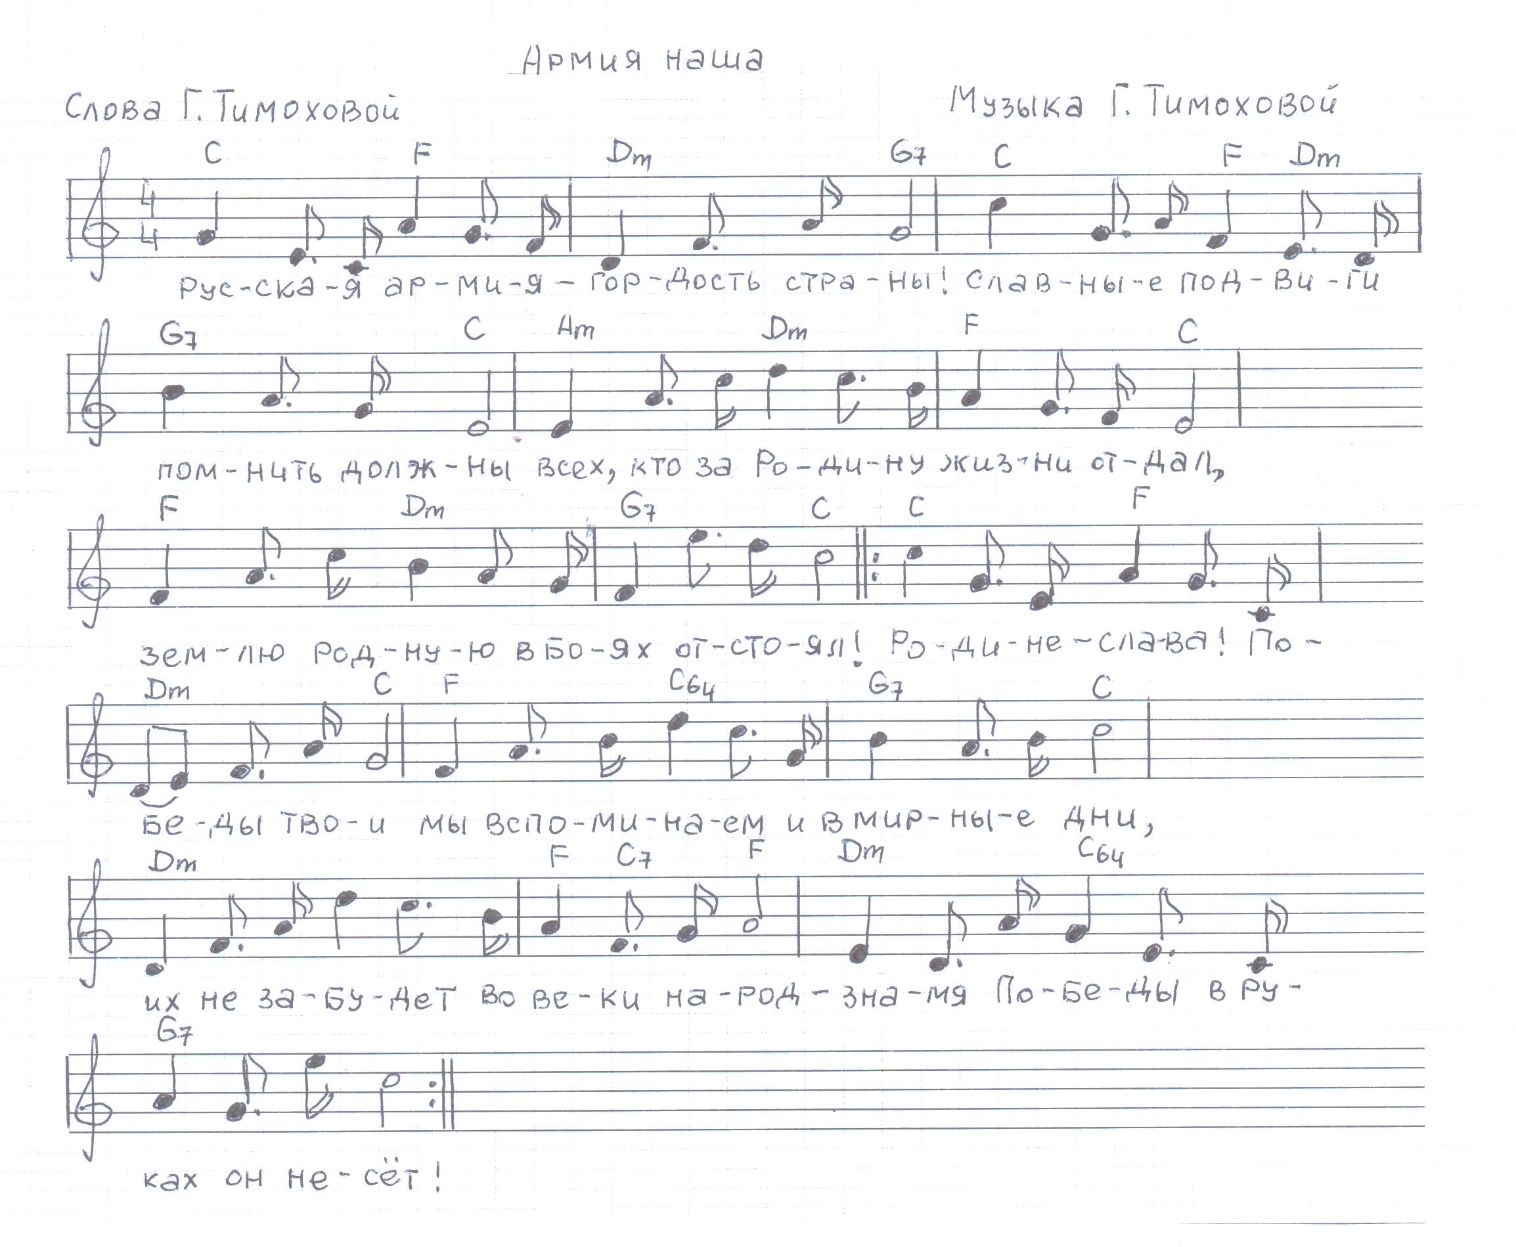 Армия наша
Слова Г. Тимоховой Музыка Г. Тимоховой
C F Dm G7 C F Dm
4
4
Рус-ска-я ар-ми-я - гор-дость стра-ны! Слав-ны-е под-ви-ги
G7 C Am Dm F C
пом-нить долж-ны всех, кто за Ро-ди-ну жиз-ни от-дал,
F Dm G7 C C F
зем-лю род-ну-ю в бо-ях от-сто-ял! Ро-ди-не-сла-ва! По-
Dm C F C64 G7 C
бе-ды тво-и мы вспо-ми-на-ем и в мир-ны-е дни,
Dm F C7 F Dm C64
их не за-бу-дет во ве-ки на-род - зна-мя По-бе-ды в ру-
G7
ках он не-сёт!